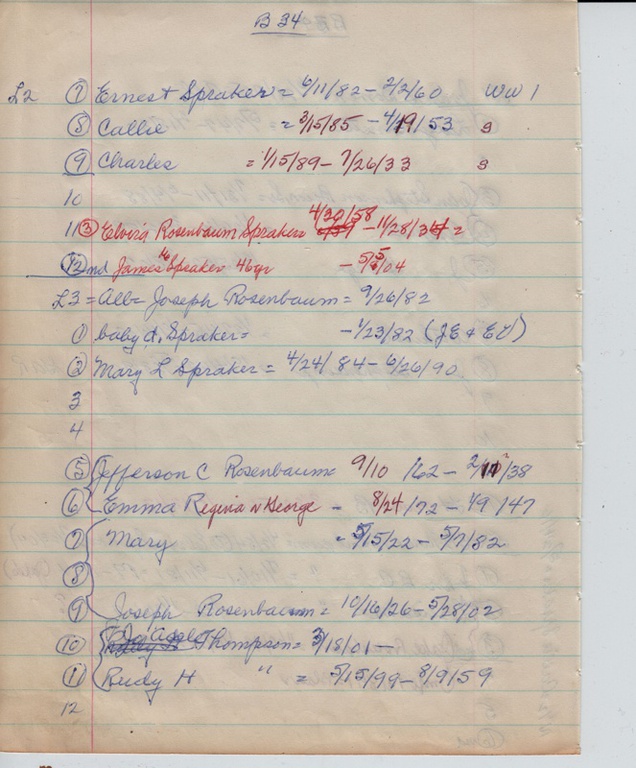 B 34
L2 ⑦ Ernest Spraker = 6/11/82 - 2/2/60 WW 1
⑧ Callie = 3/15/85 - 4/19/53 s
⑨ Charles = 1/15/89 - 7/26/33 s
10
11 ③ Elvira Rosenbaum Spraker 4/30/58 - 11/28/34 =
⑫ nd James Spraker 46yr - 5/5/04
L3 = alb = Joseph Rosenbaum = 9/26/82
① baby d. Spraker = - 1/23/82 (JE & EV)
② Mary L Spraker = 4/24/84 - 6/26/90
3
4
⑤ Jefferson C Rosenbaum = 9/10/62 - 2/11/38
⑥ Emma Regina n George - 8/24/72 - 4/9/47
⑦ Mary - 5/15/22 - 5/7/82
⑧
⑨ Joseph Rosenbaum = 10/16/26 - 5/28/02
⑩ Thompson = 3/18/01 -
⑪ Rudy H " = 5/15/99 - 8/9/59
12